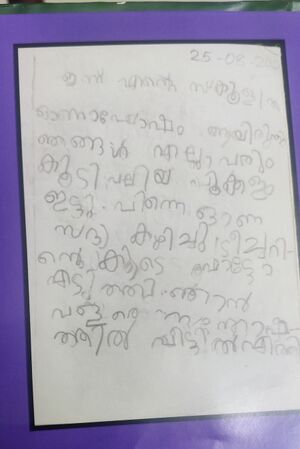 25-08-20
ഇന്ന് എന്റെ സ്കൂളിൽ
ഓണാഘോഷം ആയിരുന്നു
ഞങ്ങൾ എല്ലാവരും
കൂടി വലിയ പൂക്കളം
ഇട്ടു. പിന്നെ ഓണ
സദ്യ കഴിച്ചു. ടീച്ചറി
ന്റെ കൂടെ ഫോട്ടോ
എടുത്തു. ഞാൻ